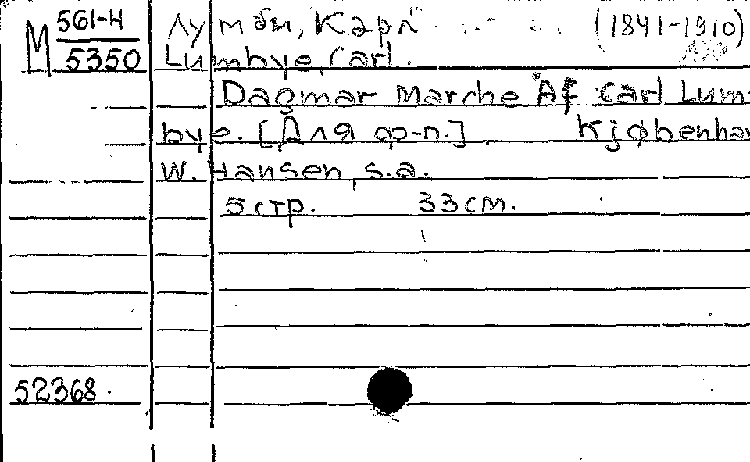 М 561-Н
5350
Лумбю, Карл (1841-1910)
Lumbye, Carl.
Dagmar Marche Af Carl Lum
bye. [Для ф-п.] Kjøbenhav
W. Hansen, s.a.
5 стр. 33 см.
52368.